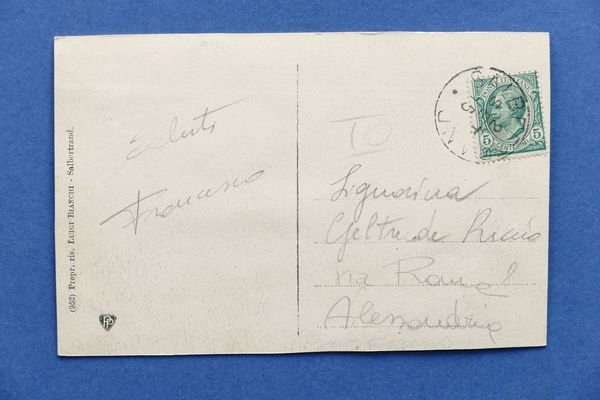 (352) Propr. ris. LUIGI BIANCHI - Salbertrand.
Saluti
Francesco
TO
Signorina
Geltrude Riccio
via Roma 8
Alessandria
5 5
CENTESIMI